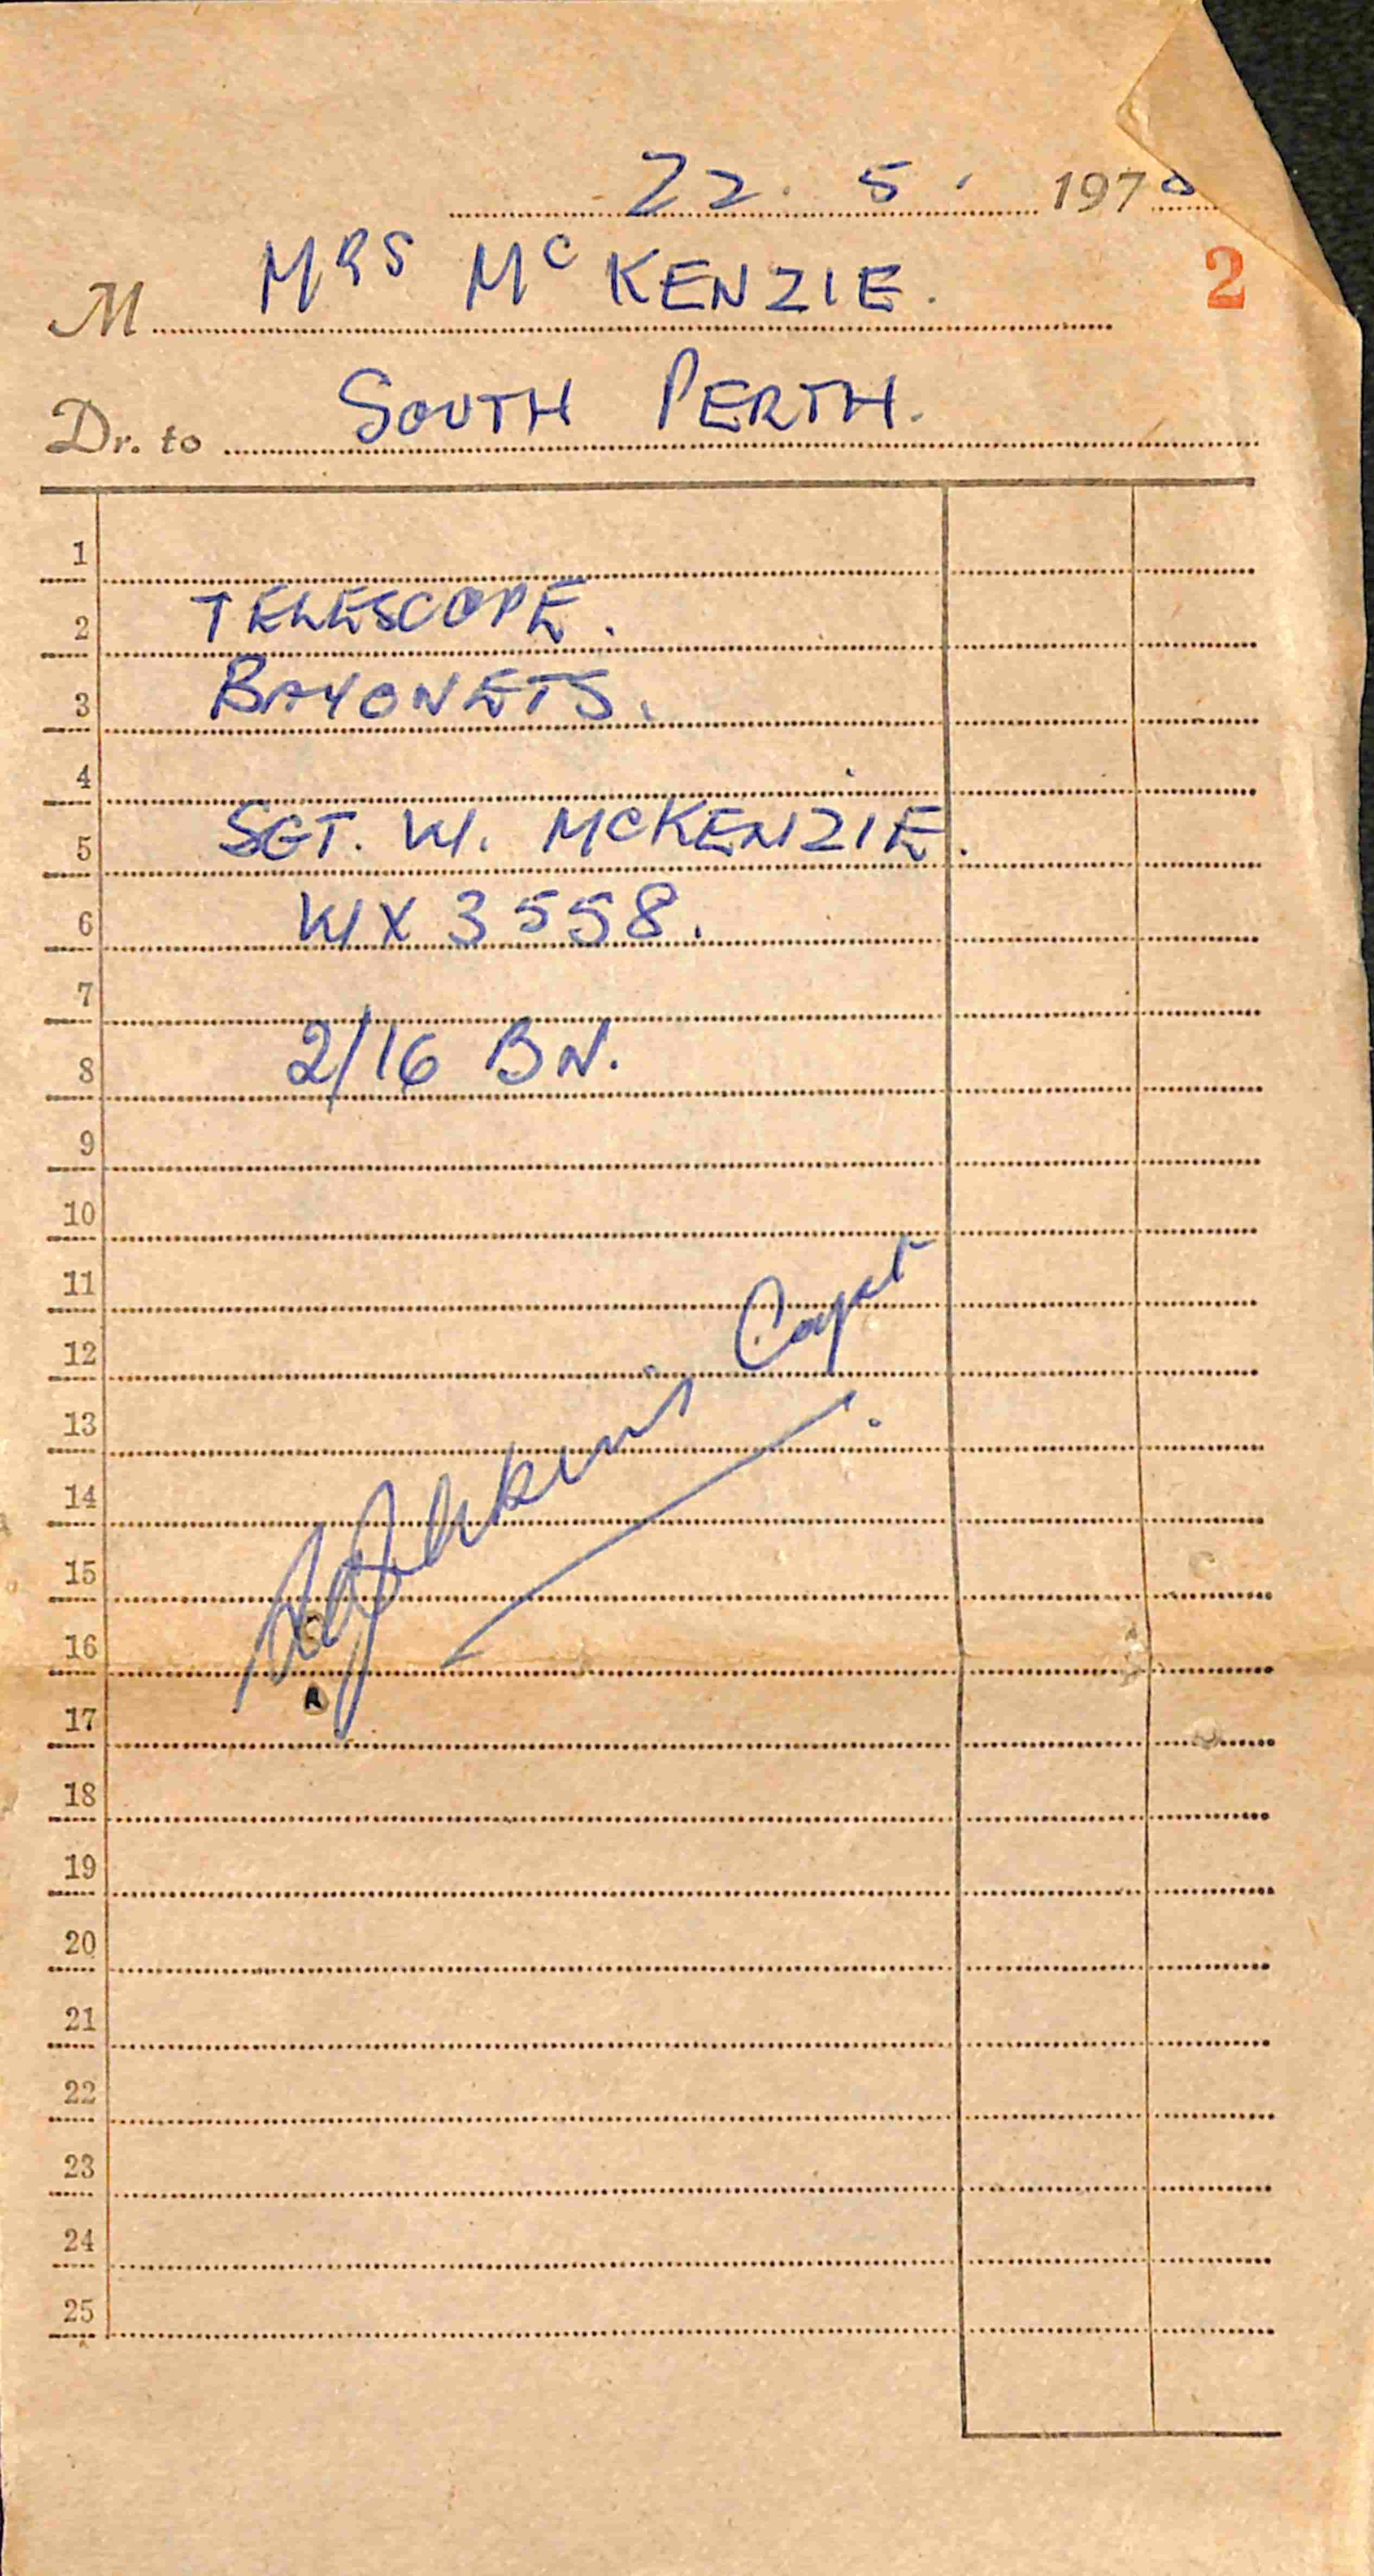 22. 5. 197
M MRS McKENZIE. 2
Dr. to SOUTH PERTH.
1
2 TELESCOPE.
3 BAYONETS.
4
5 SGT. W. McKENZIE.
6 WX 3558.
7
8 2/16 BN.
9
10
11 Capt
12
13
14
15
16
17
18
19
20
21
22
23
24
25